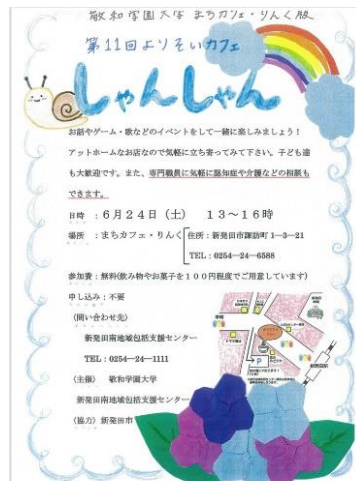 敬和学園大学 まちカフェ・りんく版
第11回よりそいカフェ
しゃんしゃん
お話やゲーム・歌などのイベントをして一緒に楽しみましょう！
アットホームなお店なので気軽に立ち寄ってみて下さい。子ども達
も大歓迎です。また、専門職員に気軽に認知症や介護などの相談も
できます。
日時 ：６月２４日（土） １３～１６時
場所 ：まちカフェ・りんく 住所：新発田市諏訪町 1―3―21
TEL：0254―24―6588
参加費：無料(飲み物やお菓子を１００円程度でご用意しています)
申し込み：不要
（問い合わせ先）
新発田南地域包括支援センター
TEL：0254―24―1111
（主催） 敬和学園大学
新発田南地域包括支援センター
（協力）新発田市
P